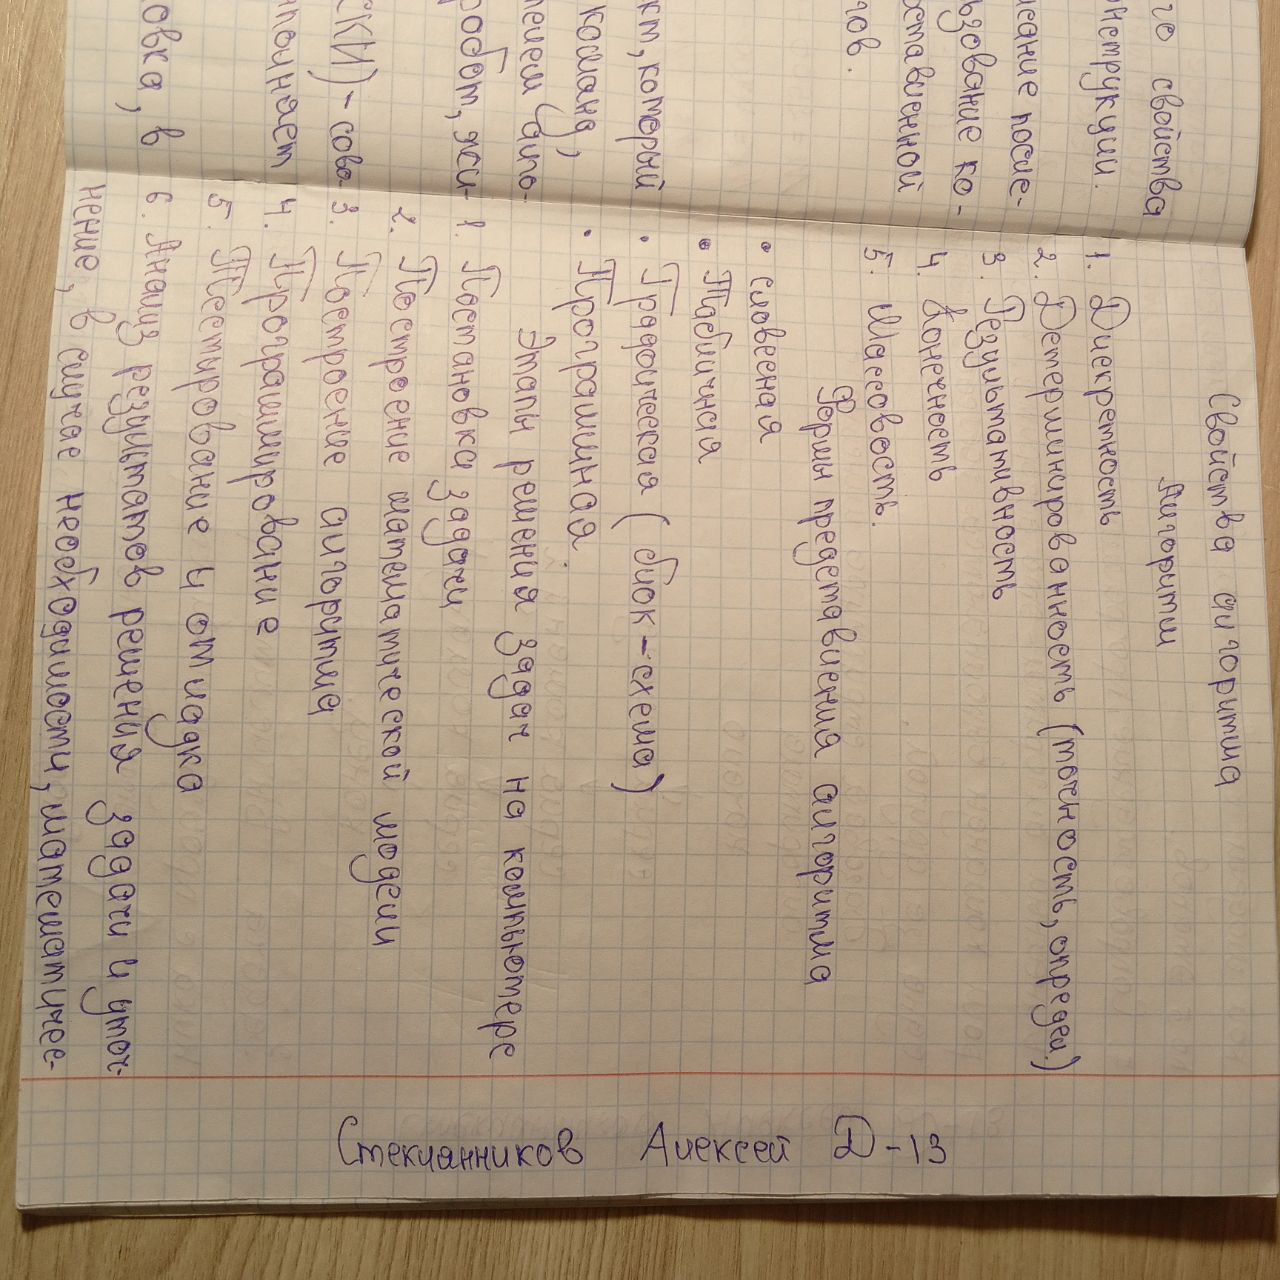 го свойства
нструкции.
исание после-
ьзование ко-
оставленной
тов.
кт, который
команд,
телем (чело-
робот, жи-
СКИ) - сово-
полняет
овка, в
Свойства алгоритма
Алгоритм
1. Дискретность
2. Детерминированность (точность, определ.)
3. Результативность
4. Конечность
5. Массовость.
Формы представления алгоритма
• словесная
• Табличная
• Графическая (блок-схема)
• Программная.
Этапы решения задач на компьютере
1. Постановка задачи
2. Построение математической модели
3. Построение алгоритма
4. Программирование
5. Тестирование и отладка
6. Анализ результатов решения задачи и уточ-
нение, в случае необходимости, математичес-
Стеклянников Алексей Д-13